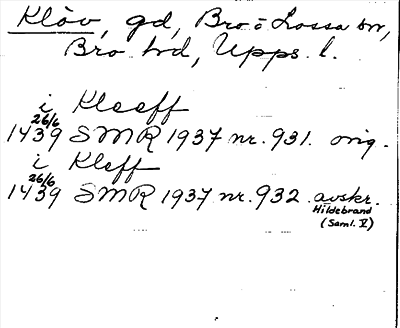 Klöv, gd, Bro o Lossa sn,
Bro hd, Upps. l.
i Kleeff
26/6
1439 SMR 1937 nr. 931. orig.
i Kleff
26/6
1439 SMR 1937 nr. 932. avskr.
Hildebrand
(Saml. V)